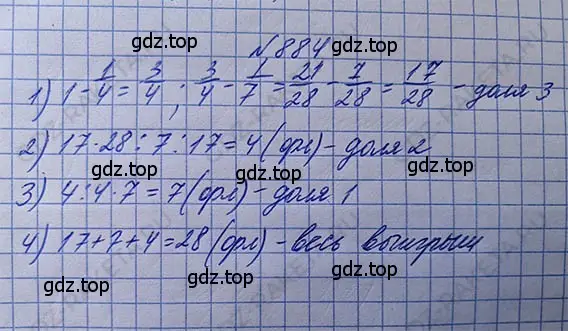 gdz.top
№884
gdz.top
1) 1 - 1/4 = 3/4 ; 3/4 - 1/7 = 21/28 - 7/28 = 17/28 - доля 3
gdz.top gdz.top
2) 17·28:7:17=4(фл) - доля 2
gdz.top
3) 4:4·7=7(фл) - доля 1
gdz.top
4) 17+7+4=28(фл) - весь выигрыш
gdz.top gdz.top